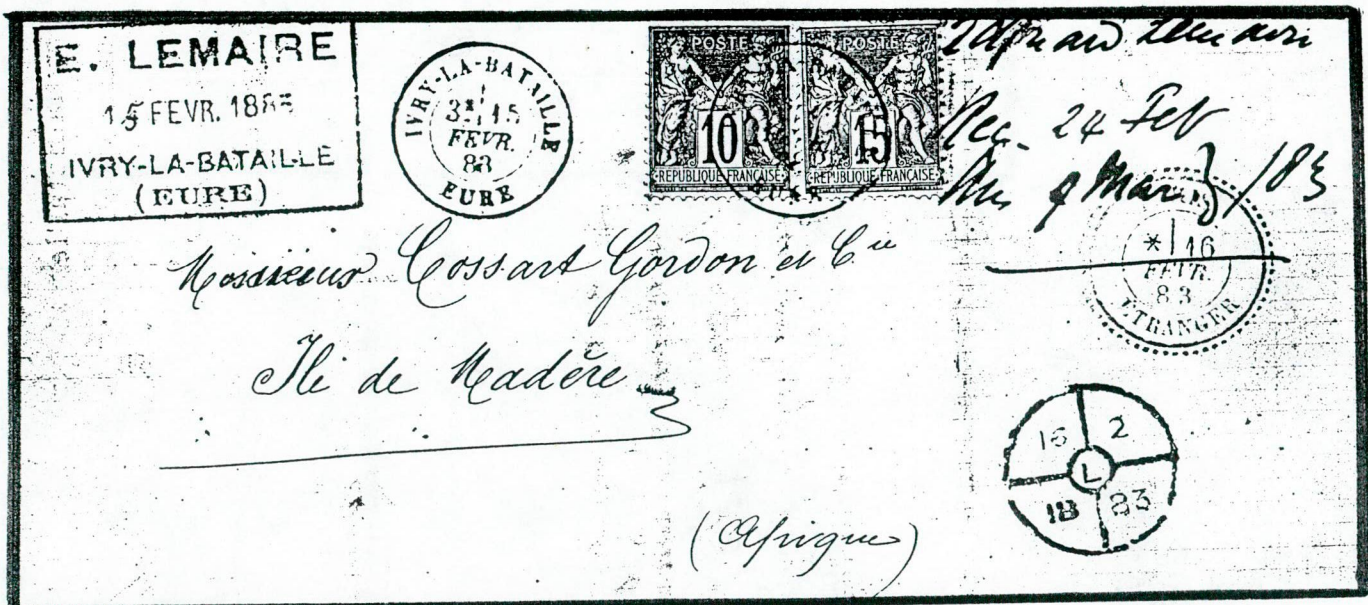 E. LEMAIRE
15 FEVR. 1883
IVRY-LA-BATAILLE
(EURE)
IVRY-LA-BATAILLE
3E 15
FEVR.
83
EURE
POSTE
10
REPUBLIQUE FRANÇAISE
POSTE
15
REPUBLIQUE FRANÇAISE
Rec. 24 Feb
Mar /83
* 16
FEVR.
83
ETRANGER
Messieurs Cossart Gordon et Cie
Ile de Madère
16 2
L
18 83
(Afrique)